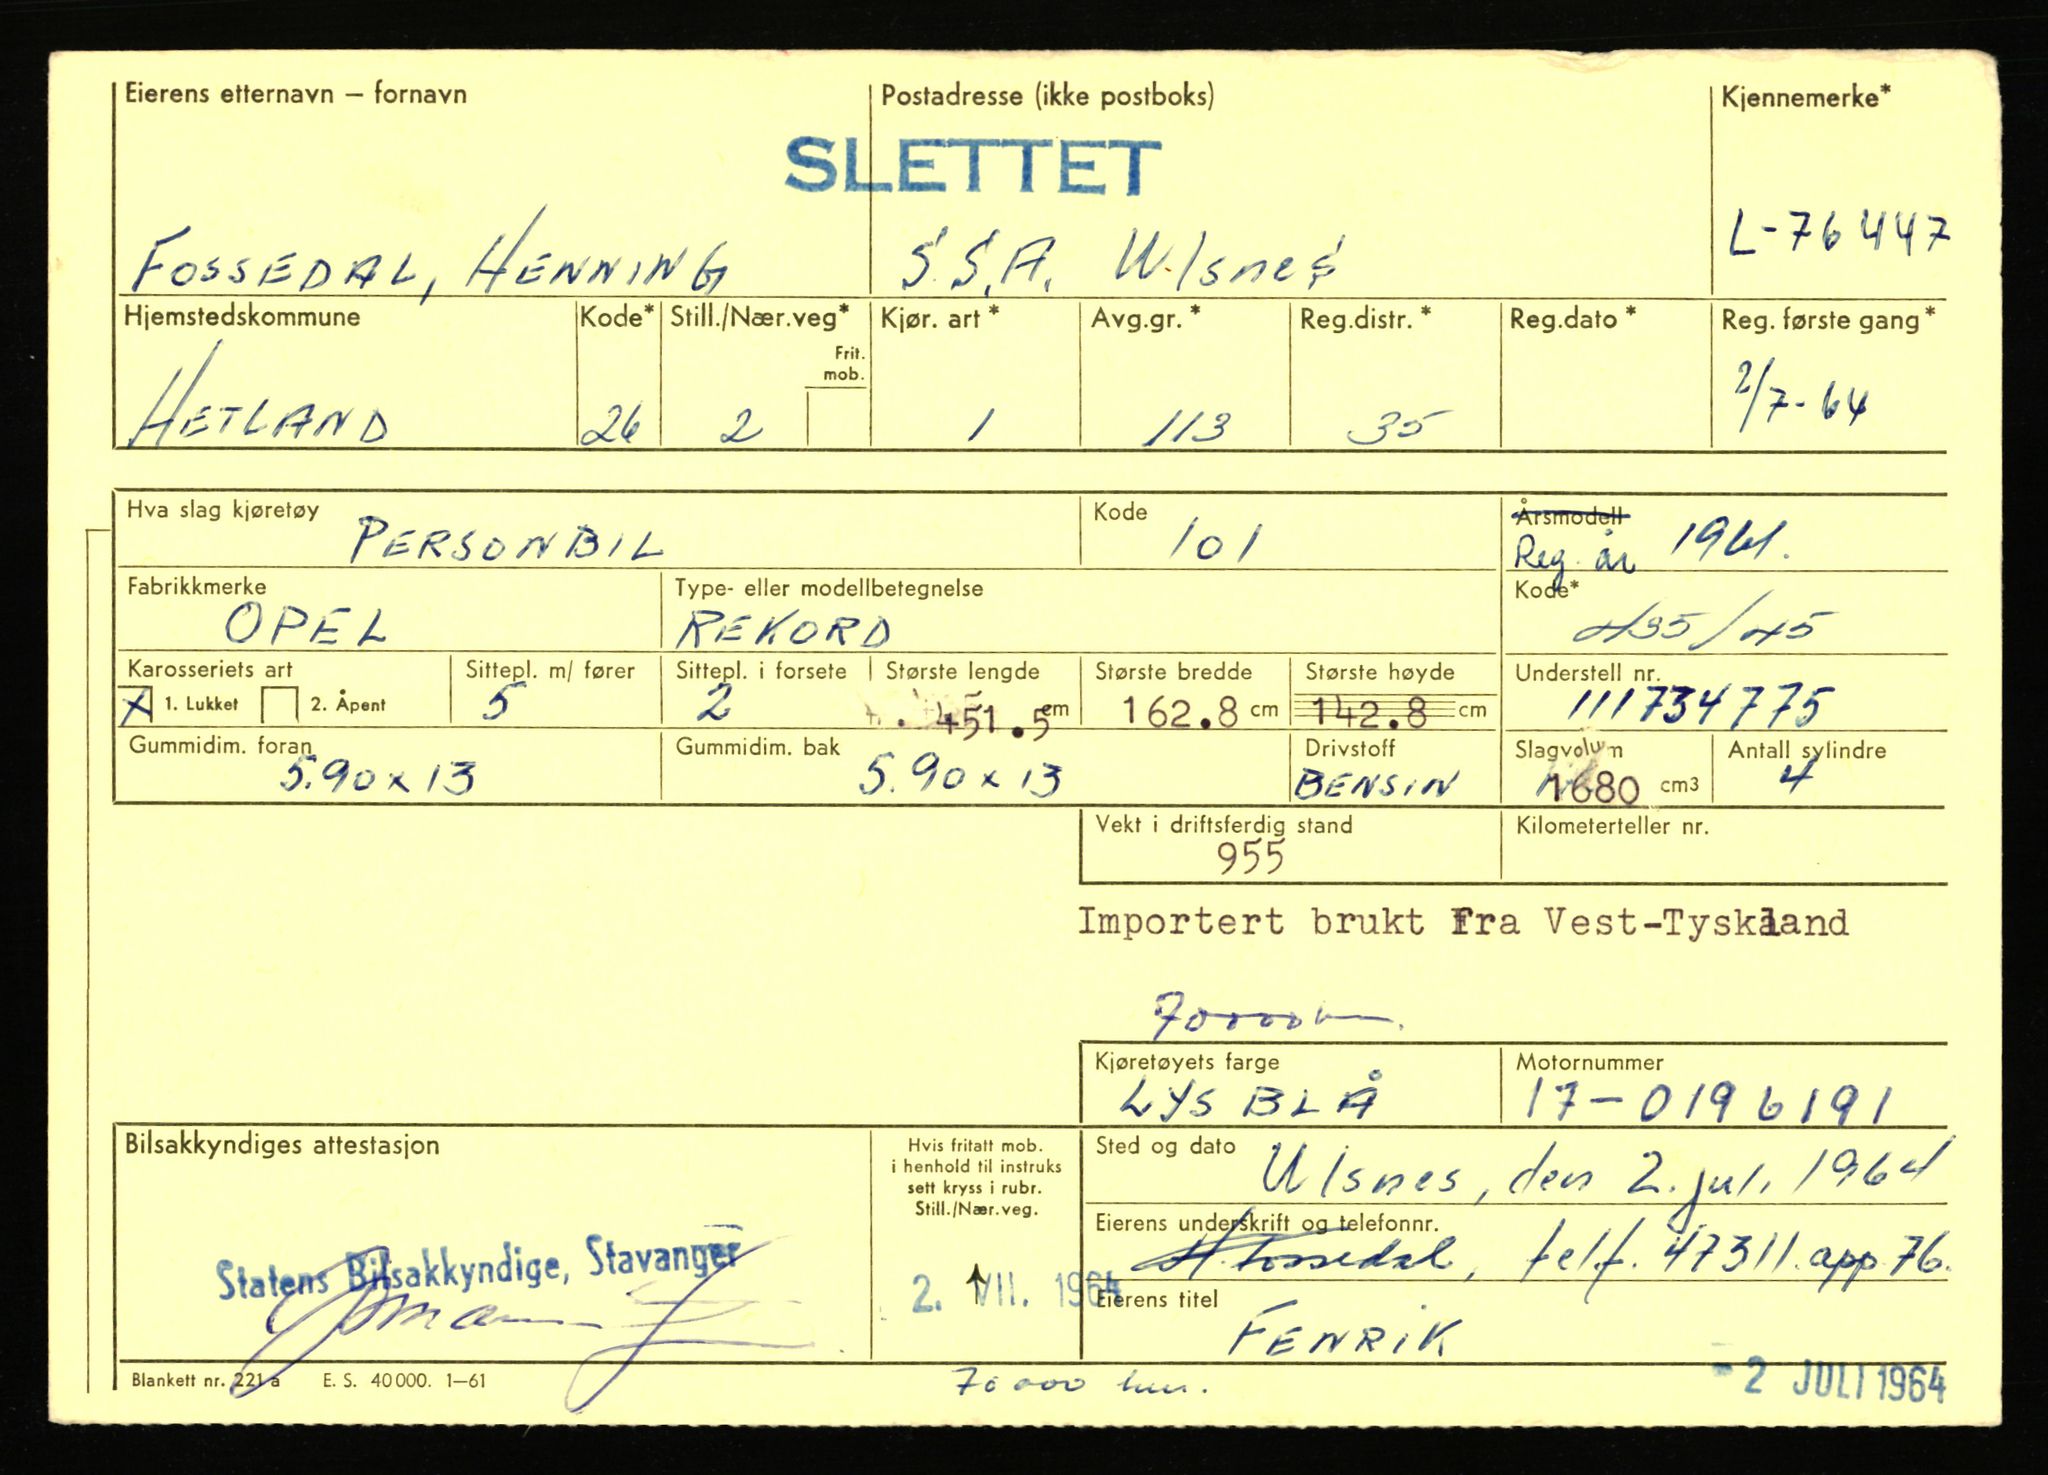 Eierens etternavn – fornavn Postadresse (ikke postboks) Kjennemerke*
SLETTET
FOSSEDAL, HENNING S.S.A. Ulsnes L-76447
Hjemstedskommune Kode* Still./Nær.veg* Kjør. art* Avg.gr.* Reg.distr.* Reg.dato* Reg. første gang*
Frit.
mob.
HETLAND 26 2 1 113 35 2/7-64
Hva slag kjøretøy PERSONBIL Kode 101 Årsmodell
Reg. år 1961.
Fabrikkmerke Type- eller modellbetegnelse Kode*
OPEL REKORD 435/45
Karosseriets art Sittepl. m/ fører Sittepl. i forsete Største lengde Største bredde Største høyde Understell nr.
X 1. Lukket 2. Åpent 5 2 451.5 cm 162.8 cm 142.8 cm 111734775
Gummidim. foran Gummidim. bak Drivstoff Slagvolum Antall sylindre
5.90 x 13 5.90 x 13 BENSIN 1680 cm3 4
Vekt i driftsferdig stand Kilometerteller nr.
955
Importert brukt Fra Vest-Tyskland
70000 km.
Kjøretøyets farge Motornummer
LYS BLÅ 17-0196191
Bilsakkyndiges attestasjon
Hvis fritatt mob.
i henhold til instruks
sett kryss i rubr.
Still./Nær.veg.
Sted og dato Ulsnes, den 2. juli 1964
Eierens underskrift og telefonnr.
H. Fossedal, telf. 47311. app 76.
Statens Bilsakkyndige, Stavanger
2. VII. 1964
Eierens titel
FENRIK
Blankett nr. 221 a E. S. 40000. 1–61 70 000 km. - 2 JULI 1964